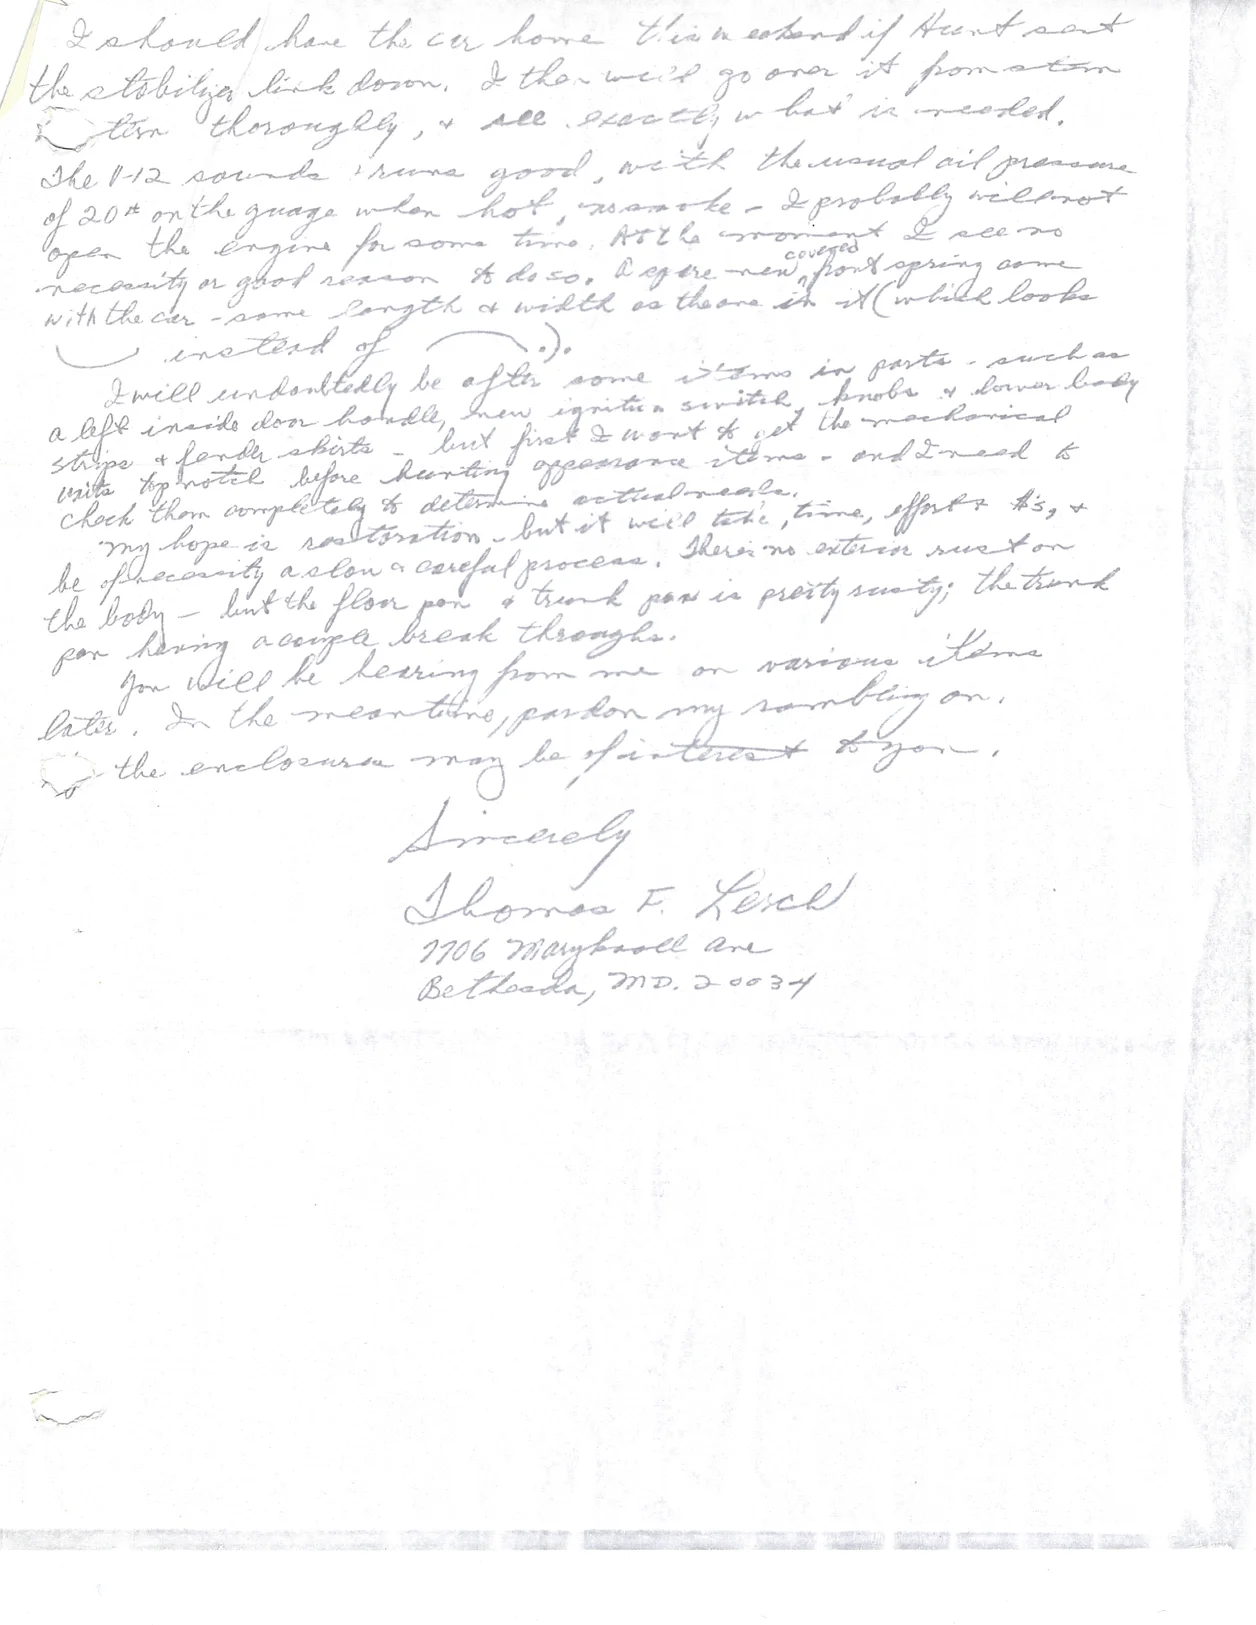 I should have the car home this weekend if Hunt sent
the stabilizer link down. I then will go over it from stem
tern thoroughly, & see exactly what is needed.
The V-12 sounds & runs good, with the usual oil pressure
of 20# on the guage when hot, no smoke - I probably will not
open the engine for some time. At the moment I see no
necessity or good reason to do so. A spare new covered front spring came
with the car - same length & width as the one in it (which looks
instead of .).
I will undoubtedly be after some items in parts - such as
a left inside door handle, new ignition switch, knobs & lower body
strips & fender skirts - but first I want to get the mechanical
units top notch before hunting appearance items - and I need to
check them completely to determine actual needs.
My hope is restoration - but it will take, time, effort & $'s, &
be of necessity a slow & careful process. There's no exterior rust on
the body - but the floor pan & trunk pan is pretty rusty; the trunk
pan having a couple break throughs.
You will be hearing from me on various items
later. In the meantime, pardon my rambling on.
the enclosures may be of interest to you.
Sincerely
Thomas F. Lerch
7706 Maryknoll Ave
Bethesda, MD. 20034